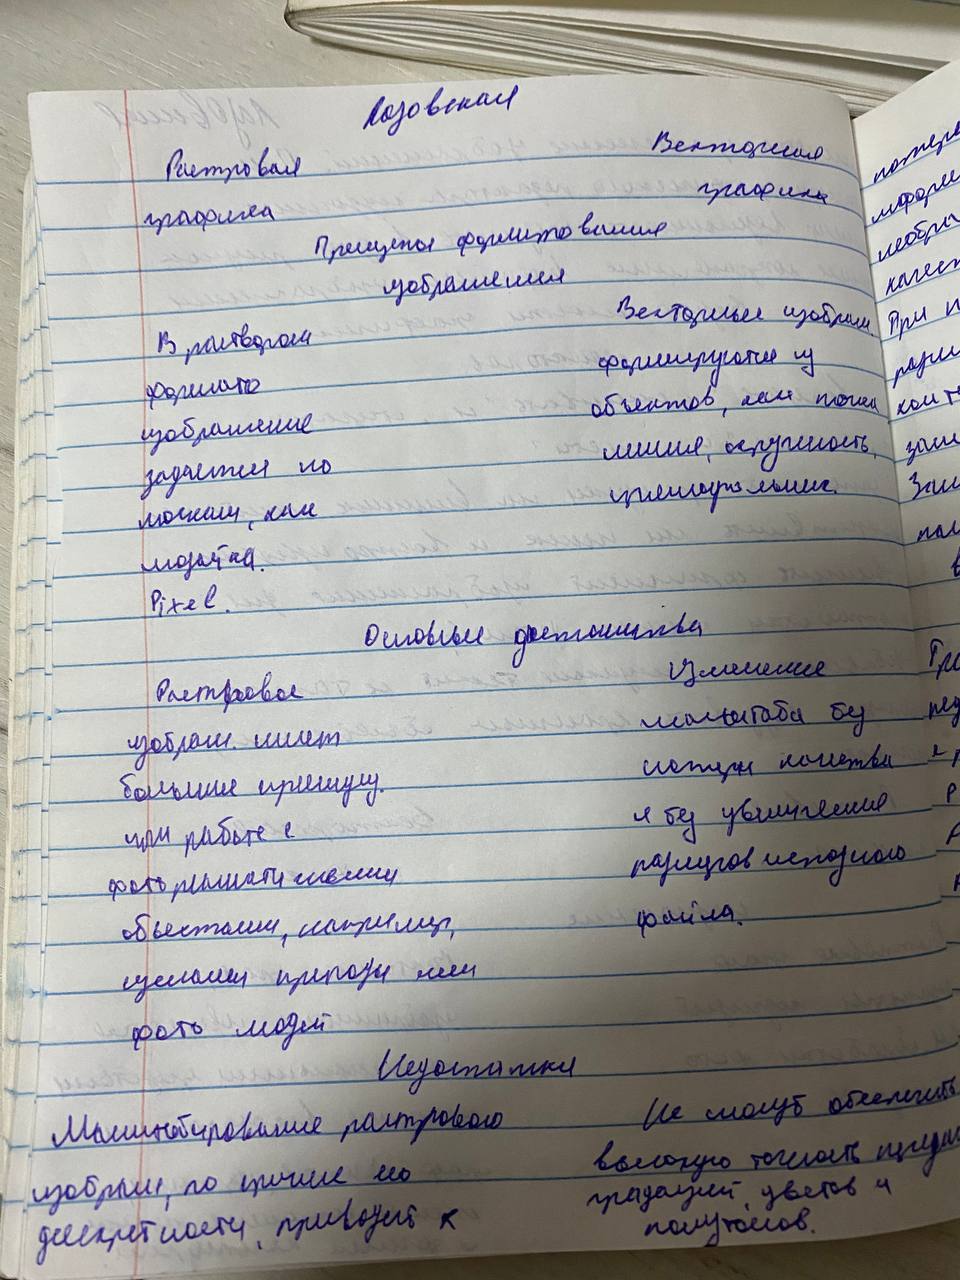 Лозовская
Растровая
графика
Векторная
графика
Принципы формирования
изображения
В растворам
формате
изображение
задается по
точкам, как
мозайка.
Pixel.
Векторные изображ.
формируются из
объектов, как точка
линия, окружность,
прямоугольник.
Основные достоинства
Растровое
изображ. имеет
большие преимущ.
при работе с
фотореалистичными
объектами, например,
сценами природы или
фото людей
Изменение
масштаба без
потери качества
и без увеличения
размеров исходного
файла.
Недостатки
Масштабирование растрового
изображ, по причине его
дискретности, приводит к
Не могут обеспечить
высокую точность передачи
градаций цветов и
полутонов.
При п
в